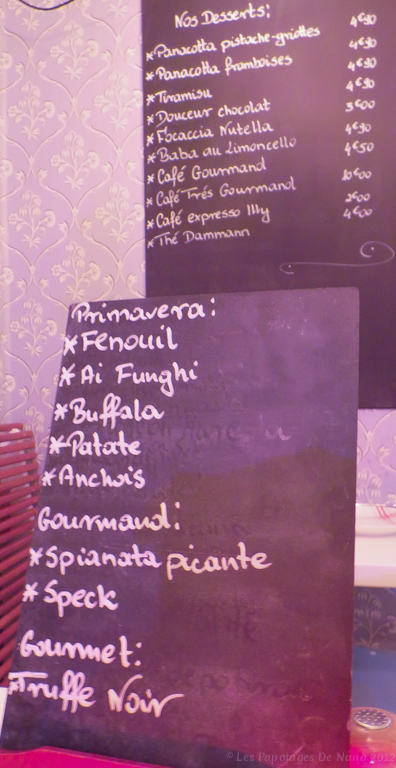 Nos Desserts:
*Panacotta pistache-griottes 4€90
*Panacotta framboises 4€90
*Tiramisu 4€90
*Douceur chocolat 4€90
*Focaccia Nutella 3€00
*Baba au Limoncello 4€90
*Café Gourmand 4€50
*Café Trés Gourmand 10€00
*Café expresso Illy 2€00
*Thé Dammann 4€00
Primavera:
*Fenouil
*Ai Funghi
*Buffala
*Patate
*Anchois
Gourmand:
*Spianata picante
*Speck
Gourmet:
*Truffe Noir
© Les Papotages De Nana 2012